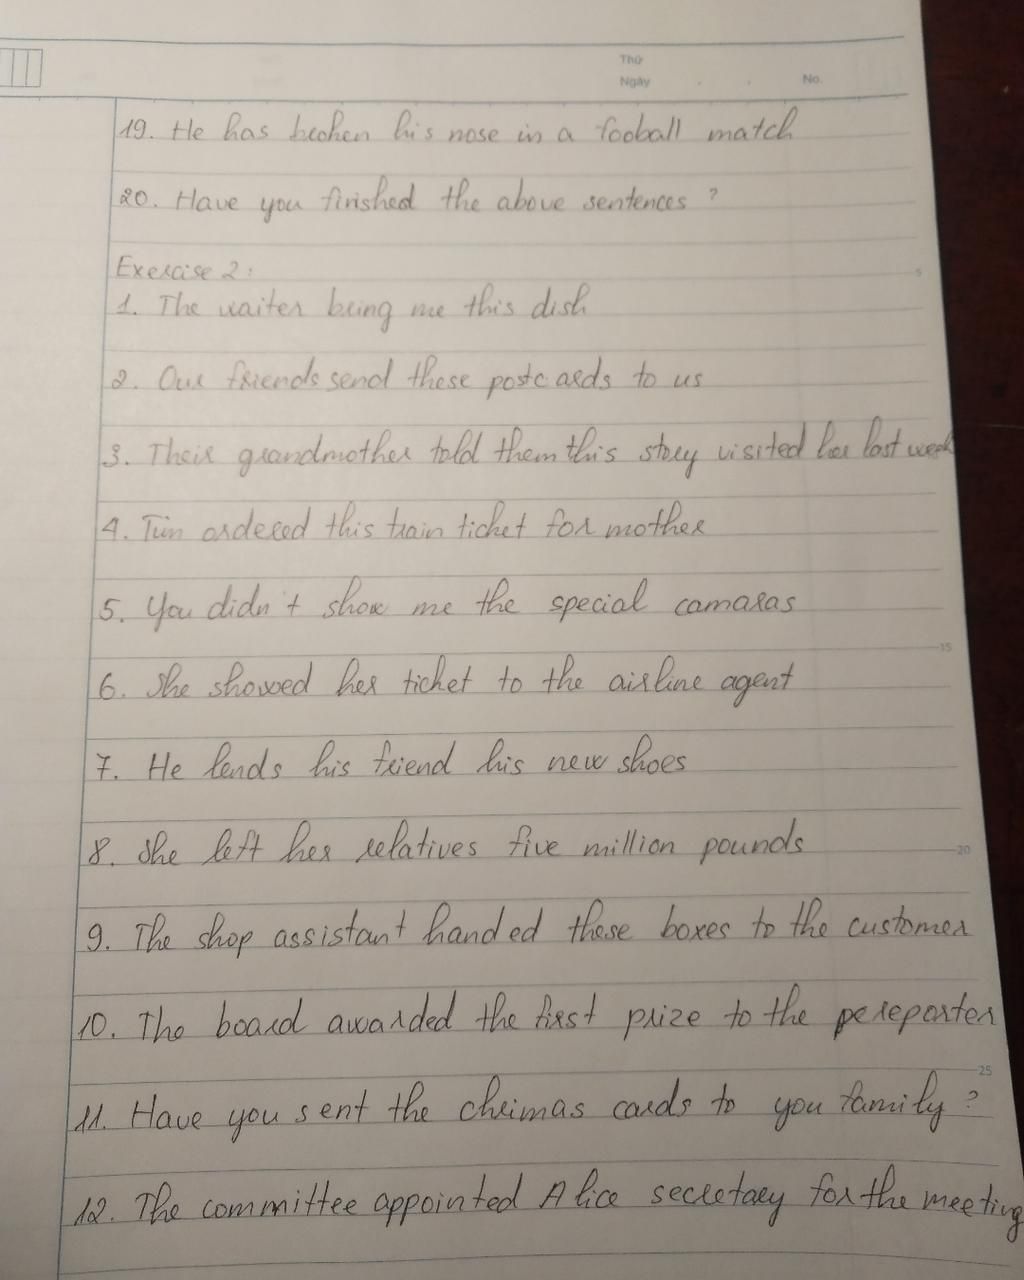 Thứ
Ngày . . No.
19. He has broken his nose in a fooball match
20. Have you finished the above sentences ?
Exercise 2:
5
1. The waiter bring me this dish
2. Our friends send these postcards to us
3. Their grandmother told them this story visited her last week
4. Tim ordered this train ticket for mother
5. You didn't show me the special camaras
15
6. She showed her ticket to the airline agent
7. He lends his friend his new shoes
8. She left her relatives five million pounds
20
9. The shop assistant handed these boxes to the customer
10. The board awarded the first prize to the pereporter
25
11. Have you sent the chrimas cards to you family ?
12. The committee appointed Alice secretary for the meeting